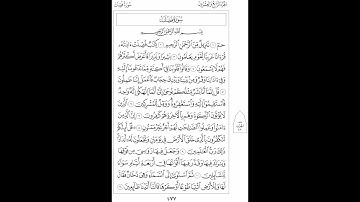 الجزء الرابع والعشرون سورة فصلت
سورة فصلت
بسم الله الرحمن الرحيم
حمٓ ١ تَنزِيلٌ مِّنَ ٱلرَّحْمَٰنِ ٱلرَّحِيمِ ٢ كِتَٰبٌ فُصِّلَتْ ءَايَٰتُهُۥ
قُرْءَانًا عَرَبِيًّا لِّقَوْمٍ يَعْلَمُونَ ٣ بَشِيرًا وَنَذِيرًا فَأَعْرَضَ أَكْثَرُهُمْ
فَهُمْ لَا يَسْمَعُونَ ٤ وَقَالُوا۟ قُلُوبُنَا فِىٓ أَكِنَّةٍ مِّمَّا تَدْعُونَآ إِلَيْهِ
وَفِىٓ ءَاذَانِنَا وَقْرٌ وَمِنۢ بَيْنِنَا وَبَيْنِكَ حِجَابٌ فَٱعْمَلْ إِنَّنَا عَٰمِلُونَ
٥ قُلْ إِنَّمَآ أَنَا۠ بَشَرٌ مِّثْلُكُمْ يُوحَىٰٓ إِلَىَّ أَنَّمَآ إِلَٰهُكُمْ إِلَٰهٌ وَٰحِدٌ
فَٱسْتَقِيمُوٓا۟ إِلَيْهِ وَٱسْتَغْفِرُوهُ وَوَيْلٌ لِّلْمُشْرِكِينَ ٦ ٱلَّذِينَ
لَا يُؤْتُونَ ٱلزَّكَوٰةَ وَهُم بِٱلْءَاخِرَةِ هُمْ كَٰفِرُونَ ٧ إِنَّ ٱلَّذِينَ
ءَامَنُوا۟ وَعَمِلُوا۟ ٱلصَّٰلِحَٰتِ لَهُمْ أَجْرٌ غَيْرُ مَمْنُونٍ ٨ قُلْ أَئِنَّكُمْ
لَتَكْفُرُونَ بِٱلَّذِى خَلَقَ ٱلْأَرْضَ فِى يَوْمَيْنِ وَتَجْعَلُونَ لَهُۥٓ أَندَادًا
ذَٰلِكَ رَبُّ ٱلْعَٰلَمِينَ ٩ وَجَعَلَ فِيهَا رَوَٰسِىَ مِن فَوْقِهَا
وَبَٰرَكَ فِيهَا وَقَدَّرَ فِيهَآ أَقْوَٰتَهَا فِىٓ أَرْبَعَةِ أَيَّامٍ سَوَآءً
لِّلسَّآئِلِينَ ١٠ ثُمَّ ٱسْتَوَىٰٓ إِلَى ٱلسَّمَآءِ وَهِىَ دُخَانٌ فَقَالَ
لَهَا وَلِلْأَرْضِ ٱئْتِيَا طَوْعًا أَوْ كَرْهًا قَالَتَآ أَتَيْنَا طَآئِعِينَ ١١
٤٧٧